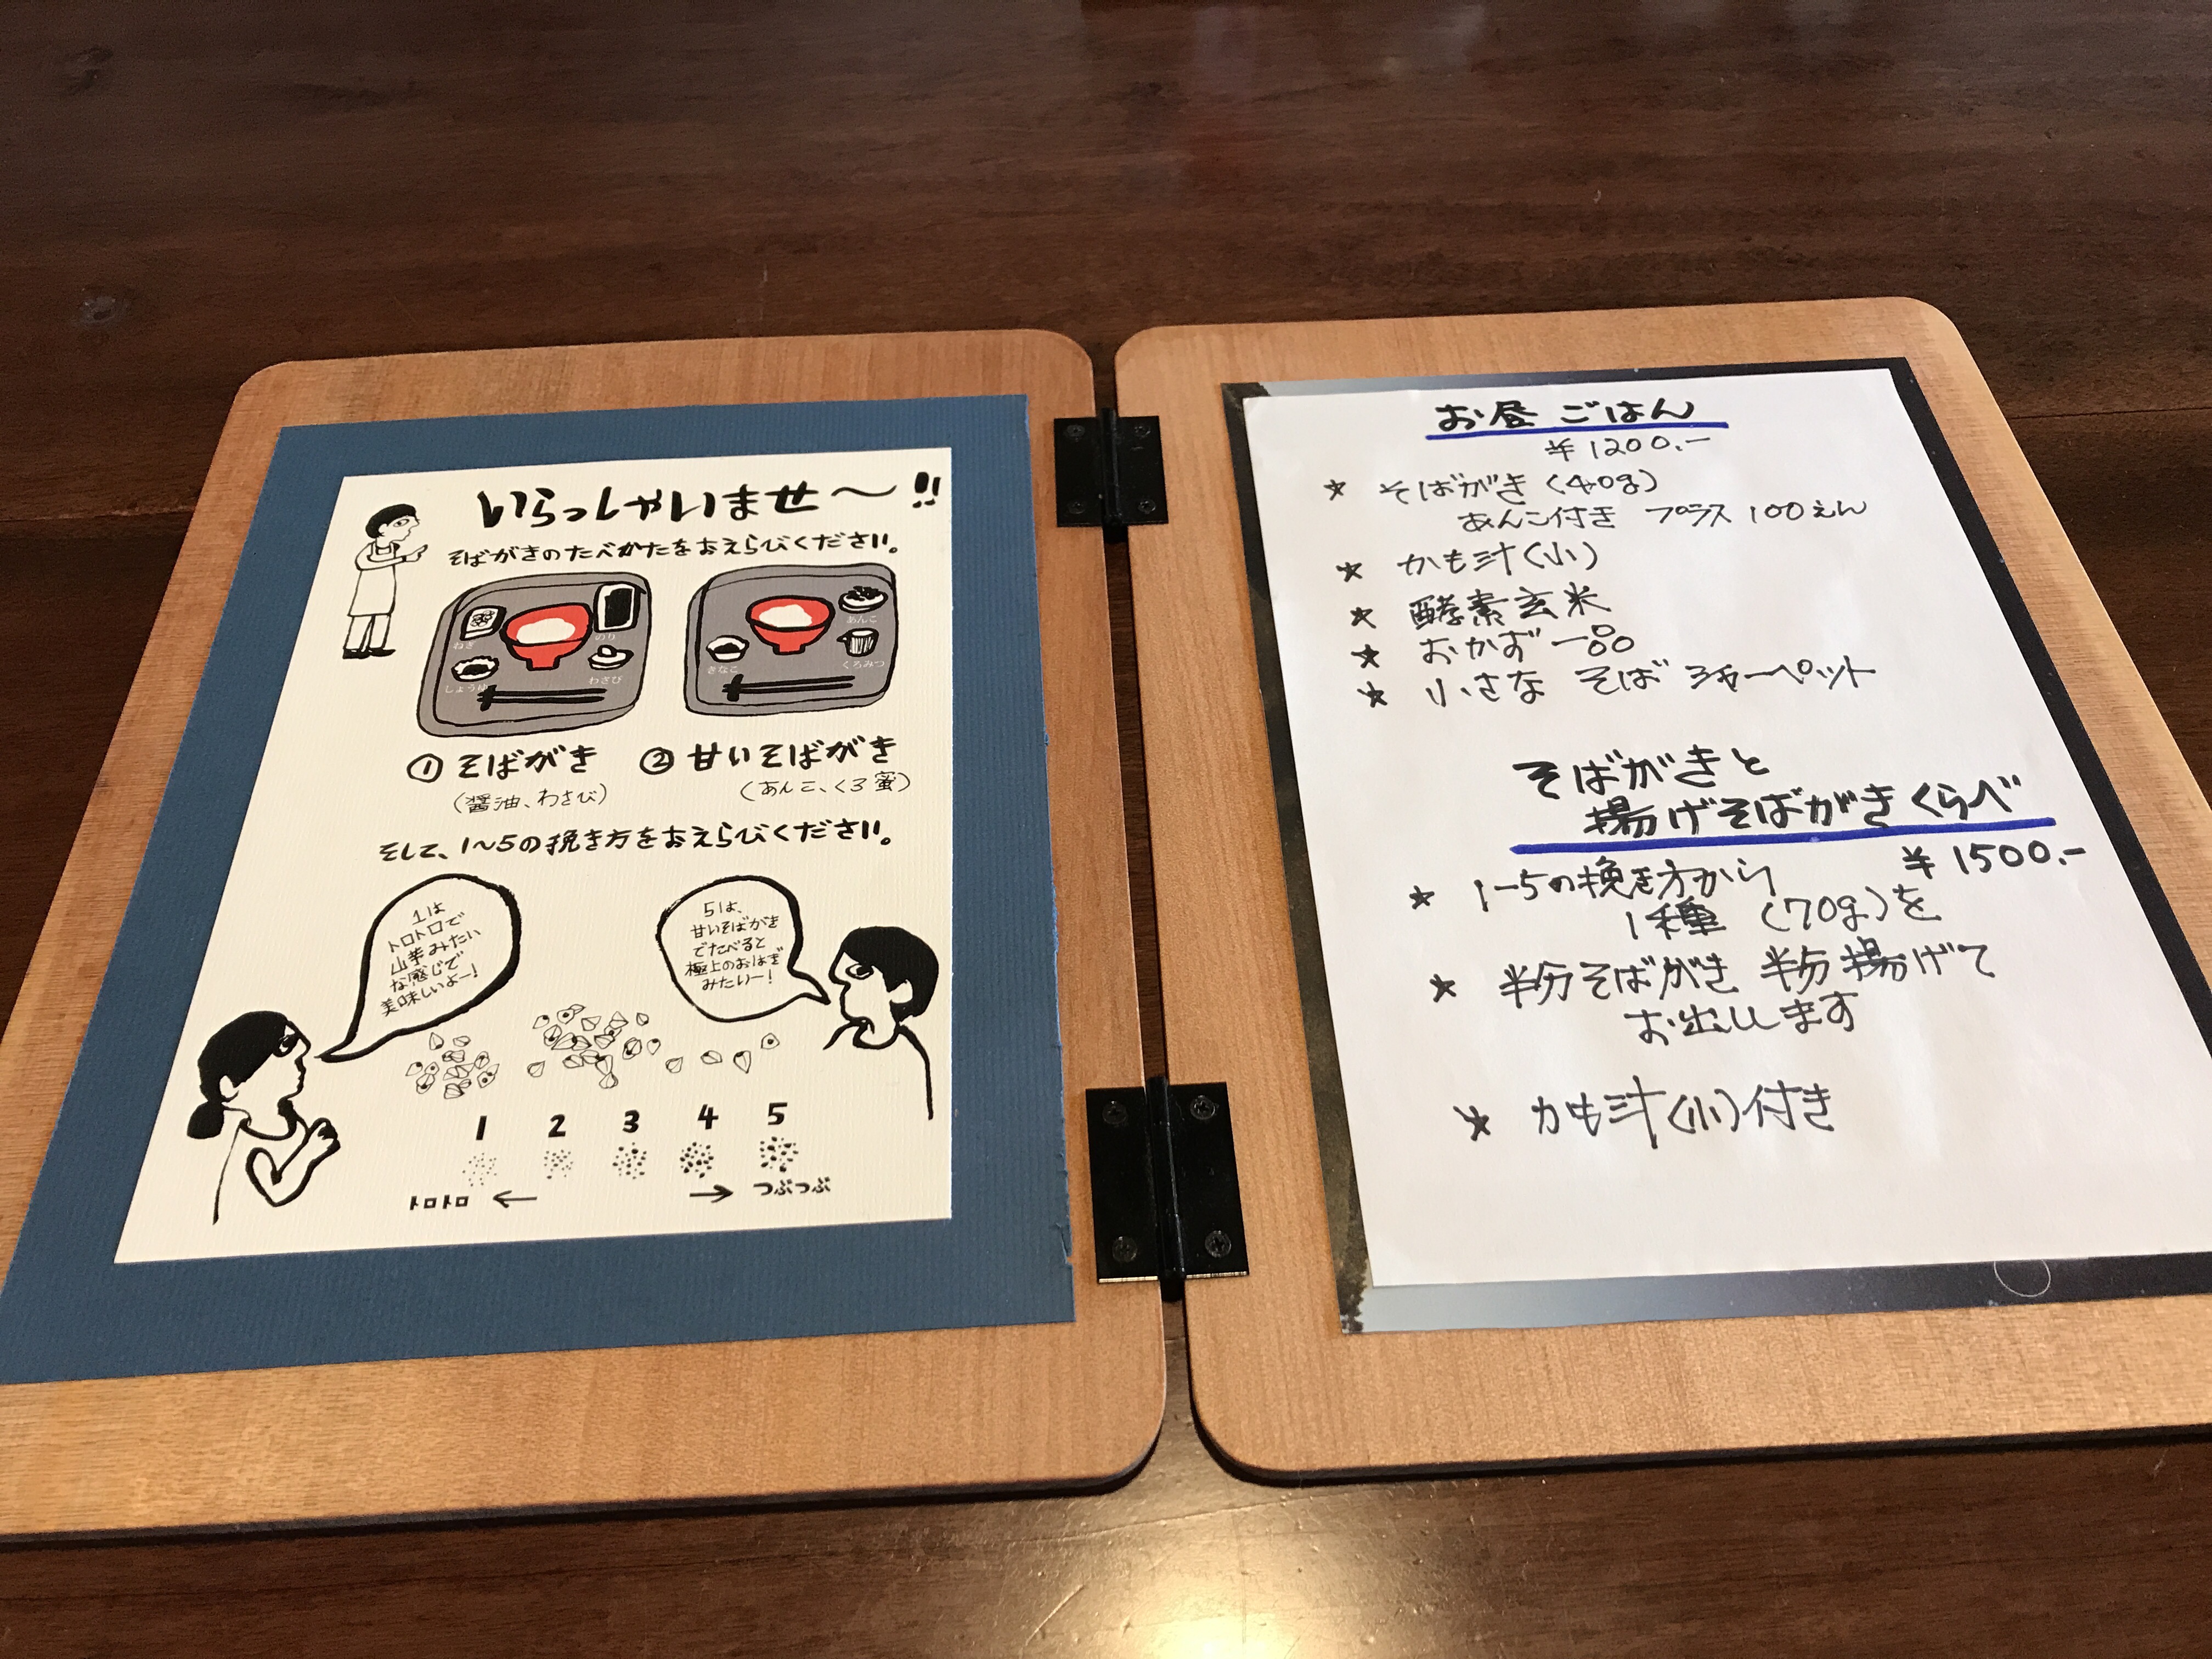 いらっしゃいませ〜!!
そばがきのたべかたをおえらびください。
ねぎ
のり
しょうゆ
わさび
あんこ
きなこ
くろみつ
① そばがき
(醤油、わさび)
② 甘いそばがき
(あんこ、くろ蜜)
そして、1〜5の挽き方をおえらびください。
1は
トロトロで
山芋みたい
な感じで
美味しいよー!
5は、
甘いそばがき
でたべると
極上のおはぎ
みたいー!
1 2 3 4 5
トロトロ ← → つぶつぶ
お昼ごはん
¥1200.-
★ そばがき(40g)
あんこ付き プラス 100えん
★ かも汁(小)
★ 酵素玄米
★ おかず一品
★ 小さな そば シャーベット
そばがきと
揚げそばがきくらべ
¥1500.-
★ 1-5の挽き方から
1種 (70g)を
★ 半分そばがき 半分揚げて
お出しします
★ かも汁(小)付き